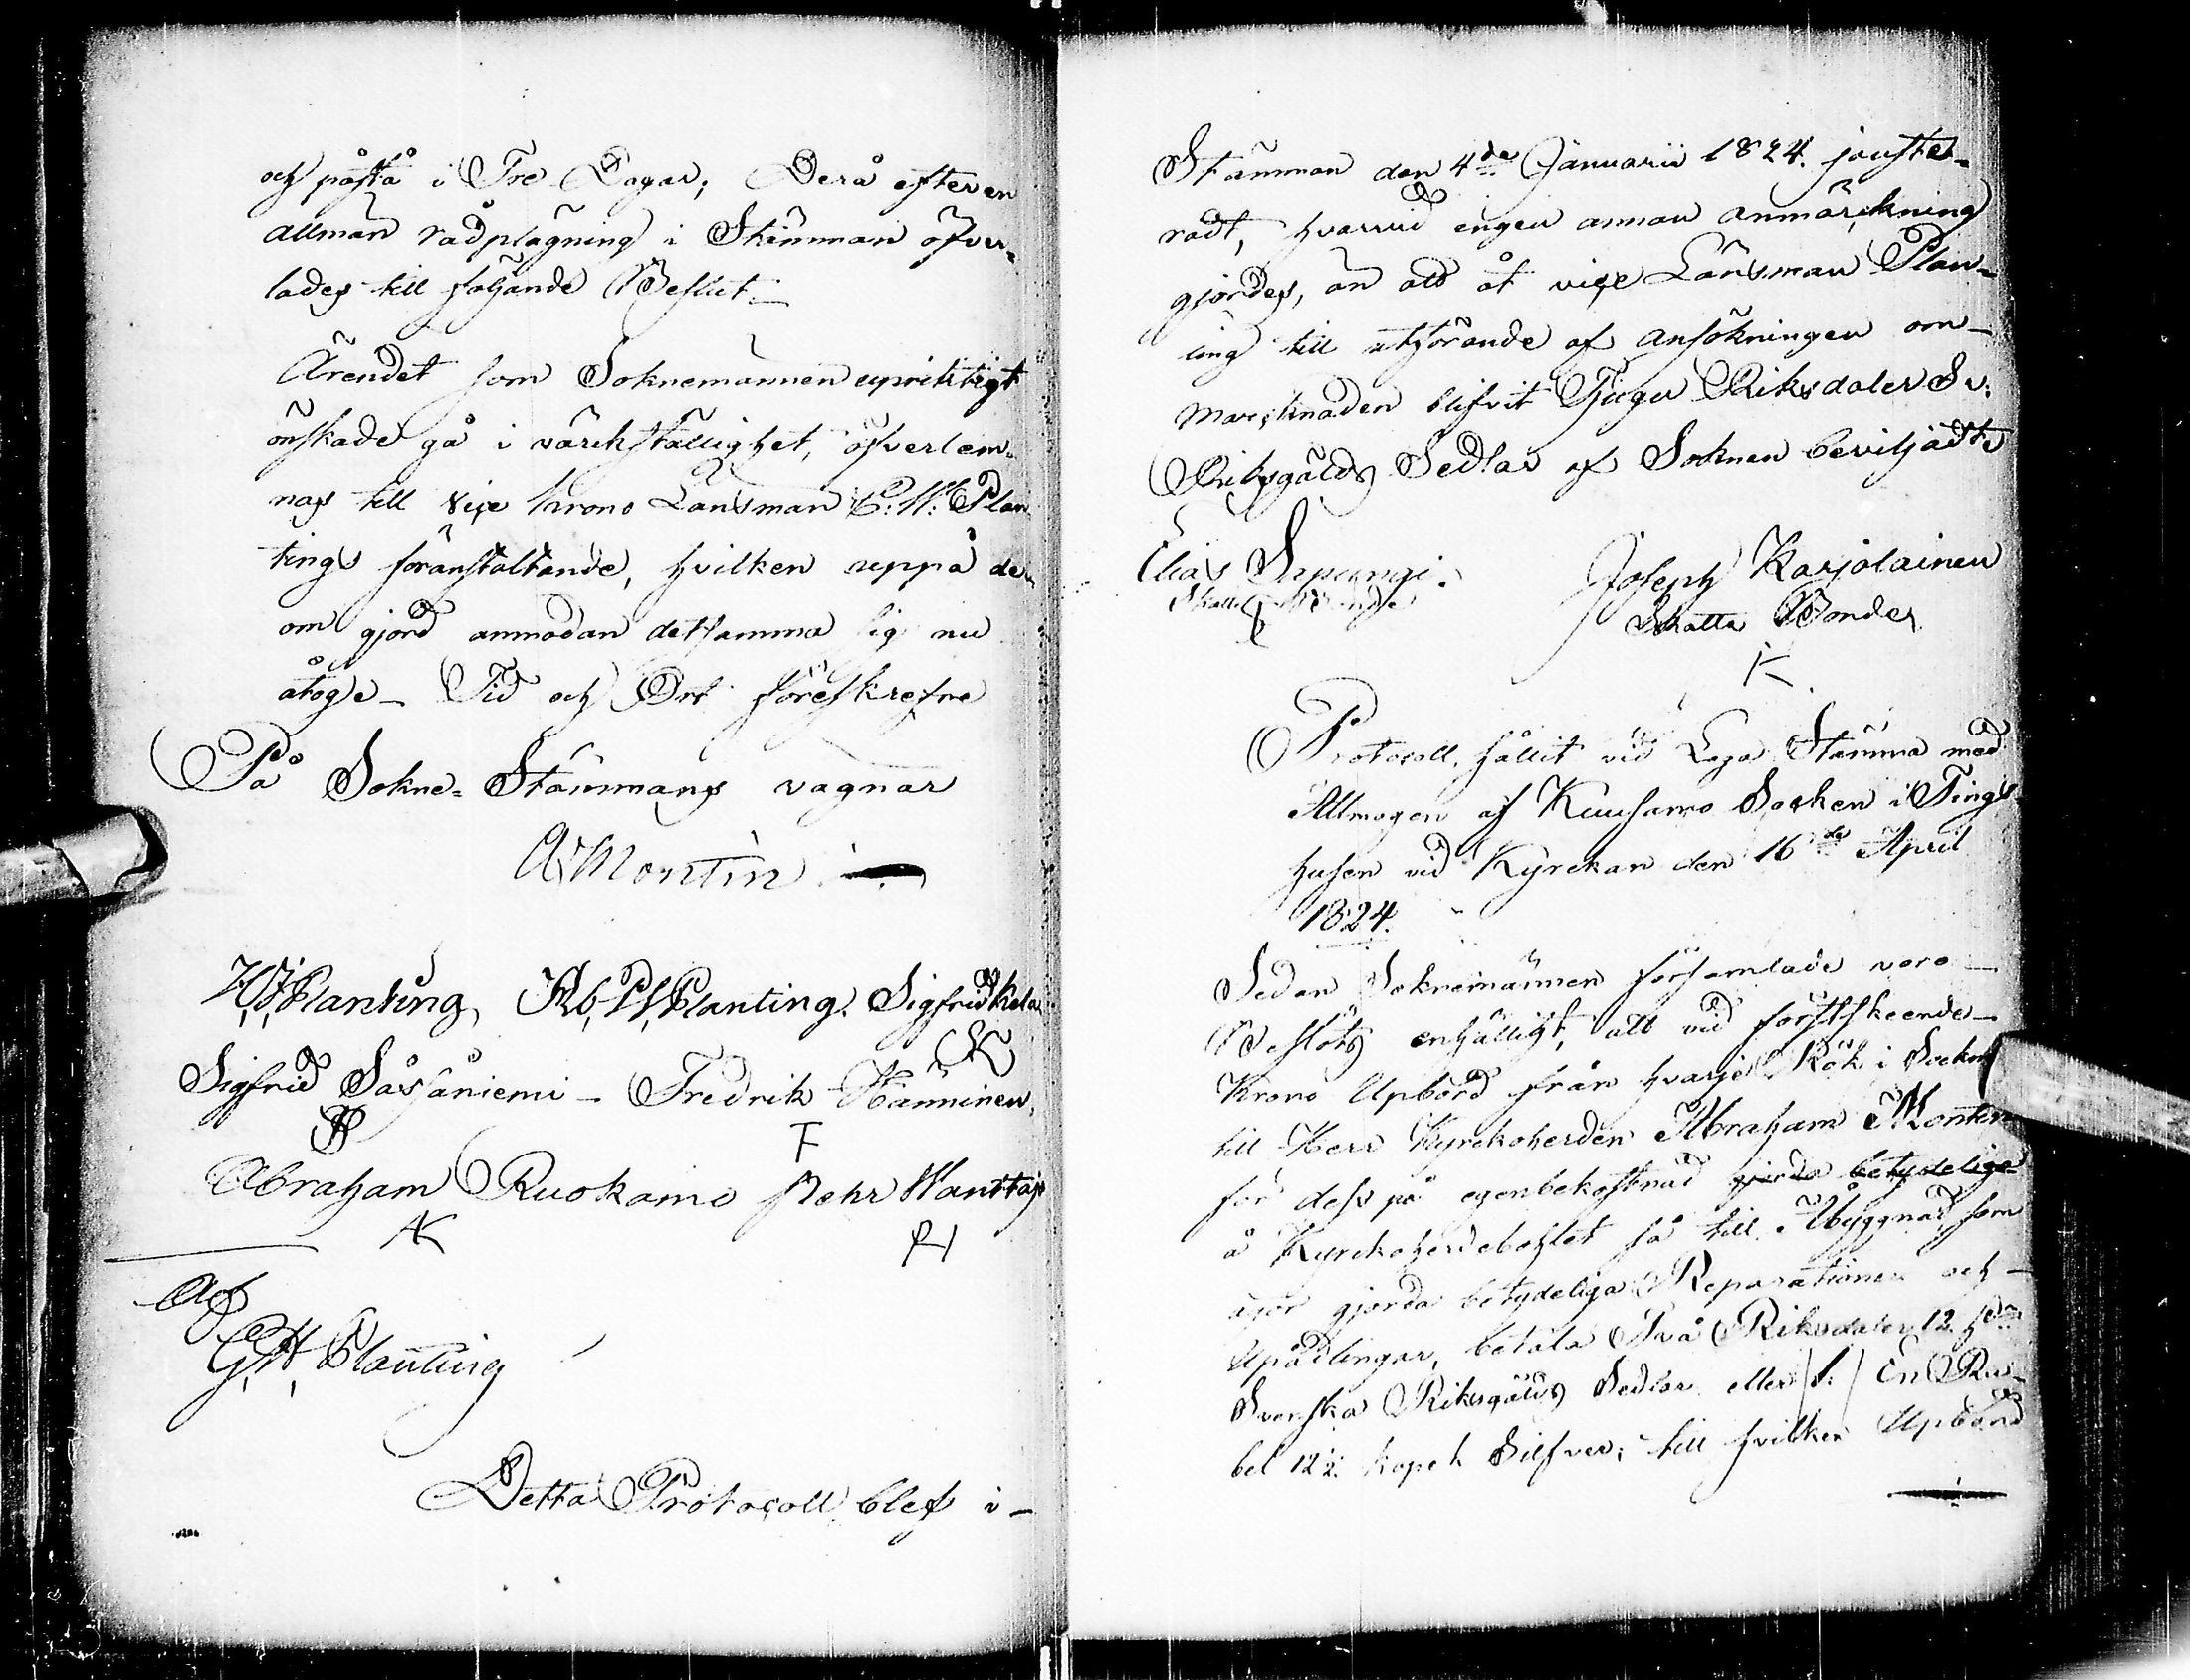 och påstå i Tre Dagar; Derå efter en
allmän rådplägning i Stämman öfver-
lades till följande Beslut._
Ärendet som Soknemännen uprikttigt
önskade gå i värkställighet, öfverlem-
nas till vice krono Länsman C: W: Plan-
tings föranstaltande, hvilken uppå der-
om gjord anmodan detsamma sig nu
åtog._ Tid och Ort föreskrefne
På Sokne-Stämmans vägnar
A Montin
H, J, Planting, Ab, W, Planting. Sigfrid Kela
SK
Sigfrid Såsåniemi _ Fredrik Hänninen,
F
Abraham Ruokamo Pehr Manttaj
AK PH
G, W, Planting
Detta Protocoll blef i _
Stämman den 4de Januarii 1824. jouste-
radt, hvarvid engen annan anmärckning
gjordes, än att åt viçe Länsman Plan-
ting till utförande af ansökningen om _
marcknaden blifvit Tjugu Riksdaler Sv:
Riksgälds Sedlar af Soknen beviljadte
Elias Sepungi. Joseph Karjalainen
Skatte Bonde Skatte Bonde
K
Protocoll, hållit vid Laga Stämma med
Allmogen af Kuusamo Socken i Tings
husen vid Kyrckan den 16de April
1824.
Sedan Soknemännen församlade voro _
Beslöts enhälligt, att vid förstskeende _
Krono Upbörd från hvarje Rök i Sockn
till Herr Kyrckoherden Abraham Montin
för dess på egenbekostnad gjorde betydelige
å Kyrckoherdebohlet så till Åbyggnad som
ägor gjorda betydeliga Reparationer och _
Upådlingar, betala Två Riksdaler 12 s
Svenska Riksgälds Sedlar eller /:/ En Ru-
bel 12½ kopek Silfver; till hvilken Upbörd